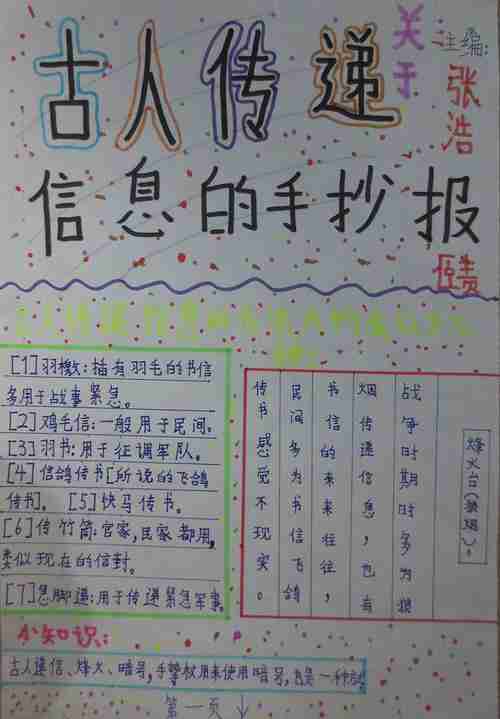 关于
古人传递
信息的手抄报
主编:
张浩
负责
[1]羽檄:插有羽毛的书信
多用于战事紧急。
[2]鸡毛信:一般用于民间。
[3]羽书:用于征调军队。
[4]信鸽传书[所说的飞鸽
传书]。 [5]快马传书。
[6]传竹筒:官家,民家都用,
类似现在的信封。
[7]急脚递:用于传递紧急军事
烽火台(狼烟)。
战争时期时多为狼
烟传递信息,也有
书信的来来往往,
民间多为书信飞鸽
传书感觉不现实。
小知识:
古人通信、烽火、暗号,手
第一页↓